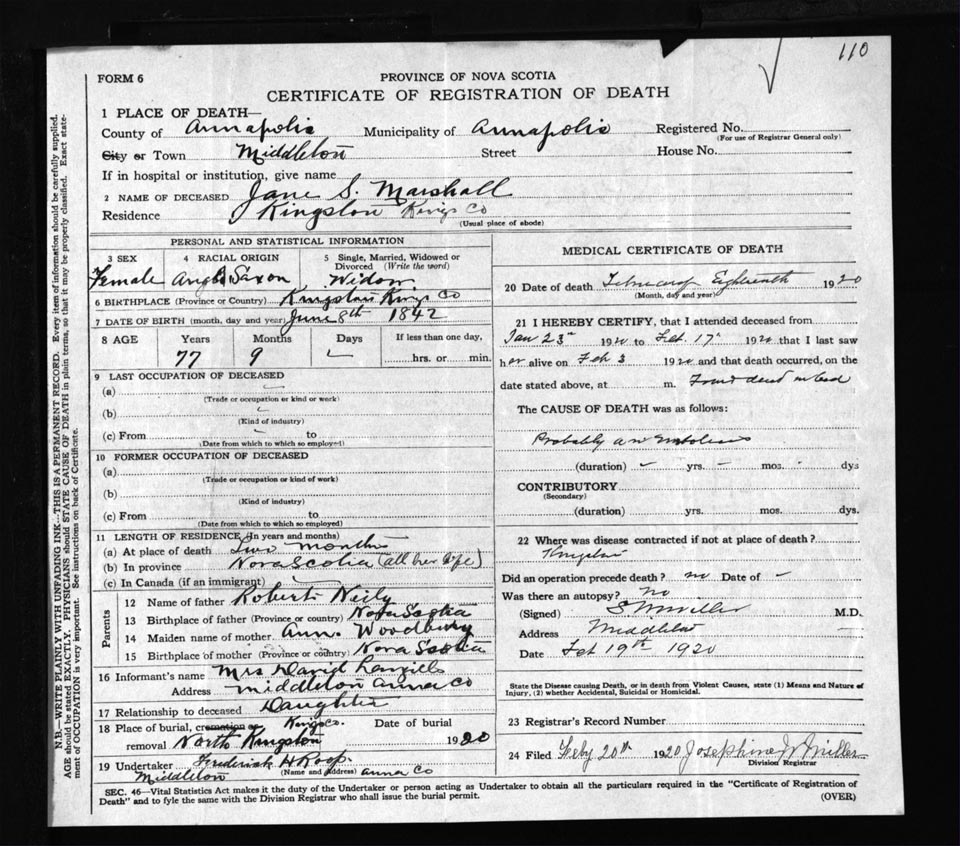 110
FORM 6
PROVINCE OF NOVA SCOTIA
CERTIFICATE OF REGISTRATION OF DEATH
1 PLACE OF DEATH—
County of Annapolis Municipality of Annapolis Registered No.
(For use of Registrar General only)
City or Town Middleton Street House No.
If in hospital or institution, give name
2 NAME OF DECEASED Jane S. Marshall
Residence Kingston Kings Co
(Usual place of abode)
PERSONAL AND STATISTICAL INFORMATION
3 SEX 4 RACIAL ORIGIN 5 Single, Married, Widowed or Divorced (Write the word)
Female Anglo Saxon Widow
6 BIRTHPLACE (Province or Country) Kingston Kings Co
7 DATE OF BIRTH (month, day and year) June 8th 1842
8 AGE Years Months Days If less than one day,
77 9 hrs. or min.
9 LAST OCCUPATION OF DECEASED
(a)
(Trade or occupation or kind or work)
(b)
(Kind of industry)
(c) From to
(Date from which to which so employed)
10 FORMER OCCUPATION OF DECEASED
(a)
(Trade or occupation or kind of work)
(b)
(Kind of industry)
(c) From to
(Date from which to which so employed)
11 LENGTH OF RESIDENCE (In years and months)
(a) At place of death Two months
(b) In province Nova Scotia (all her life)
(c) In Canada (if an immigrant)
Parents
12 Name of father Robert Neily
13 Birthplace of father (Province or country) Nova Scotia
14 Maiden name of mother Ann Woodbury
15 Birthplace of mother (Province or country) Nova Scotia
16 Informant's name Mrs David
Address Middleton Anna Co
17 Relationship to deceased Daughter
18 Place of burial, cremation or Kings Co. Date of burial
removal North Kingston 1920
19 Undertaker Frederick H Roop
Middleton (Name and Address) Anna Co
MEDICAL CERTIFICATE OF DEATH
20 Date of death February Eighteenth 1920
(Month, day and year)
21 I HEREBY CERTIFY, that I attended deceased from
Jan 23rd 1920 to Feb. 17th 1920 that I last saw
her alive on Feb 3 1920 and that death occurred, on the
date stated above, at m. Found dead in bed
The CAUSE OF DEATH was as follows:
Probably an Embolism
(duration) yrs. mos. dys
CONTRIBUTORY
(Secondary)
(duration) yrs. mos. dys.
22 Where was disease contracted if not at place of death?
Kingston
Did an operation precede death? no Date of
Was there an autopsy? no
(Signed) Miller M.D.
Address Middleton
Date Feb 19th 1920
State the Disease causing Death, or in death from Violent Causes, state (1) Means and Nature of
Injury, (2) whether Accidental, Suicidal or Homicidal.
23 Registrar's Record Number
24 Filed Feby 20th 1920 Josephine W Miller
Division Registrar
SEC. 46—Vital Statistics Act makes it the duty of the Undertaker or person acting as Undertaker to obtain all the particulars required in the "Certificate of Registration of
Death" and to fyle the same with the Division Registrar who shall issue the burial permit.
(OVER)
N.B.—WRITE PLAINLY WITH UNFADING INK—THIS IS A PERMANENT RECORD. Every item of information should be carefully supplied.
AGE should be stated EXACTLY. PHYSICIANS should STATE CAUSE OF DEATH in plain terms, so that it may be properly classified. Exact state-
ment of OCCUPATION is very important. See instructions on back of Certificate.